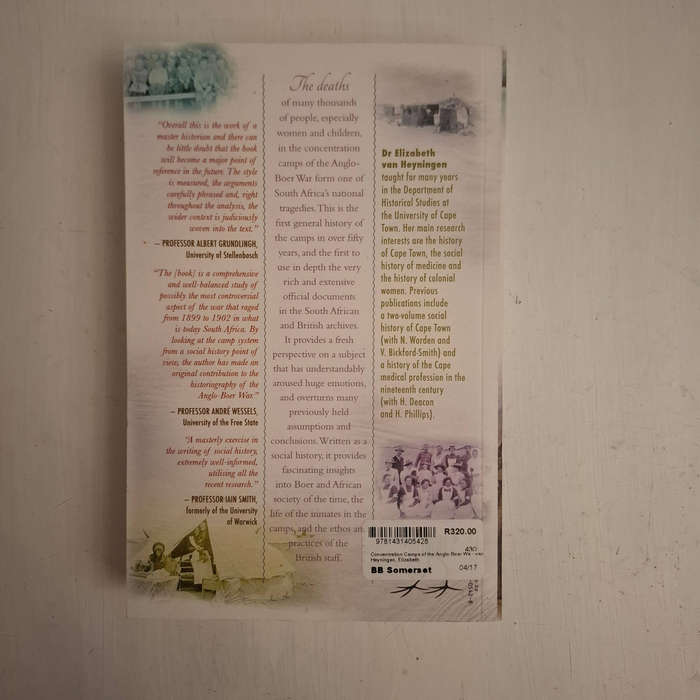 "Overall this is the work of a
master historian and there can
be little doubt that the book
will become a major point of
reference in the future. The style
is measured, the arguments
carefully phrased and, right
throughout the analysis, the
wider context is judiciously
woven into the text."
– PROFESSOR ALBERT GRUNDLINGH,
University of Stellenbosch
"The [book] is a comprehensive
and well-balanced study of
possibly the most controversial
aspect of the war that raged
from 1899 to 1902 in what
is today South Africa. By
looking at the camp system
from a social history point of
view, the author has made an
original contribution to the
historiography of the
Anglo-Boer War."
– PROFESSOR ANDRÉ WESSELS,
University of the Free State
"A masterly exercise in
the writing of social history,
extremely well-informed,
utilising all the
recent research."
– PROFESSOR IAIN SMITH,
formerly of the University
of Warwick
The deaths
of many thousands
of people, especially
women and children,
in the concentration
camps of the Anglo-
Boer War form one of
South Africa's national
tragedies. This is the
first general history of
the camps in over fifty
years, and the first to
use in depth the very
rich and extensive
official documents
in the South African
and British archives.
It provides a fresh
perspective on a subject
that has understandably
aroused huge emotions,
and overturns many
previously held
assumptions and
conclusions. Written as a
social history, it provides
fascinating insights
into Boer and African
society of the time, the
life of the inmates in the
camps, and the ethos an
practices of the
British staff.
Dr Elizabeth
van Heyningen
taught for many years
in the Department of
Historical Studies at
the University of Cape
Town. Her main research
interests are the history
of Cape Town, the social
history of medicine and
the history of colonial
women. Previous
publications include
a two-volume social
history of Cape Town
(with N. Worden and
V. Bickford-Smith) and
a history of the Cape
medical profession in the
nineteenth century
(with H. Deacon
and H. Phillips).
R320.00
9781431405428
430
Concentration Camps of the Anglo-Boer War van
Heyningen, Elizabeth
BB Somerset 04/17